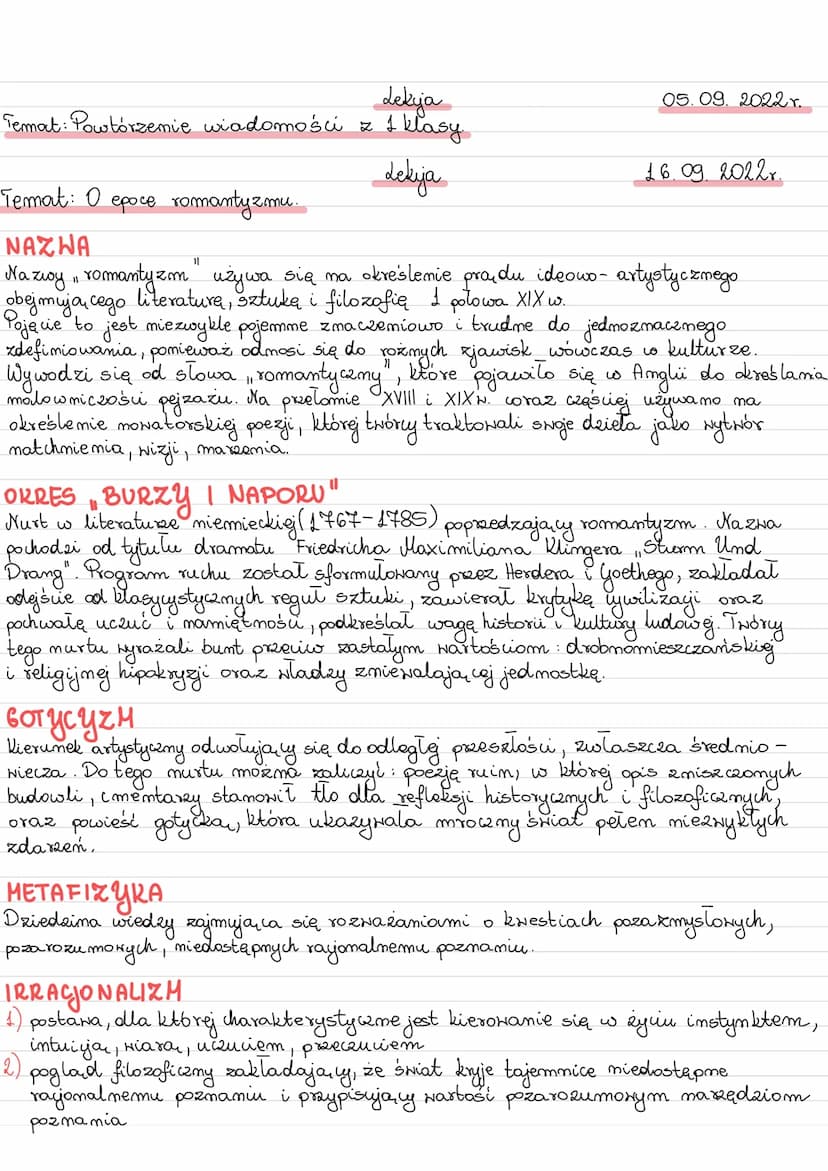 Lekcja 05.09.2022r.
Temat: Powtórzenie wiadomości z 1 klasy.
Lekcja 16.09.2022r.
Temat: O epoce romantyzmu.
NAZWA
Nazwy „romantyzm" używa się na określenie prądu ideowo-artystycznego
obejmującego literaturę, sztukę i filozofię 1 połowa XIX w.
Pojęcie to jest niezwykle pojemne znaczeniowo i trudne do jednoznacznego
zdefiniowania, ponieważ odnosi się do rożnych zjawisk wówczas w kulturze.
Wywodzi się od słowa „romantyczny", które pojawiło się w Anglii do określania
malowniczości pejzażu. Na przełomie XVIII i XIXw. coraz częściej używano na
określenie nowatorskiej poezji, której twórcy traktowali swoje dzieła jako wytwór
natchnienia, wizji, marzenia.
OKRES „BURZY I NAPORU"
Nurt w literaturze niemieckiej (1767-1785) poprzedzający romantyzm. Nazwa
pochodzi od tytułu dramatu Friedricha Maximiliana Klingera „Sturm Und
Drang". Program ruchu został sformułowany przez Herdera i Goethego, zakładał
odejście od klasycystycznych reguł sztuki, zawierał krytykę cywilizacji oraz
pochwałę uczuć i namiętności, podkreślał wagę historii i kultury ludowej. Twórcy
tego nurtu wyrażali bunt przeciw zastałym wartościom: drobnomieszczańskiej
i religijnej hipokryzji oraz władzy zniewalającej jednostkę.
GOTYCYZM
Kierunek artystyczny odwołujący się do odległej przeszłości, zwłaszcza średnio-
wiecza. Do tego nurtu można zaliczyć: poezję ruin, w której opis zniszczonych
budowli, cmentarzy stanowił tło dla refleksji historycznych i filozoficznych,
oraz powieść gotycką, która ukazywała mroczny świat pełem niezwykłych
zdarzeń.
METAFIZYKA
Dziedzina wiedzy zajmująca się rozważaniami o kwestiach pozazmysłowych,
pozarozumowych, niedostępnych racjonalnemu poznaniu.
IRRACJONALIZM
1) postawa, dla której charakterystyczne jest kierowanie się w życiu instynktem,
intuicją, wiarą, uczuciem, przeczuciem
2) pogląd filozoficzny zakładający, że świat kryje tajemnice niedostępne
racjonalnemu poznaniu i przypisujący wartość pozarozumowym narzędziom
poznania